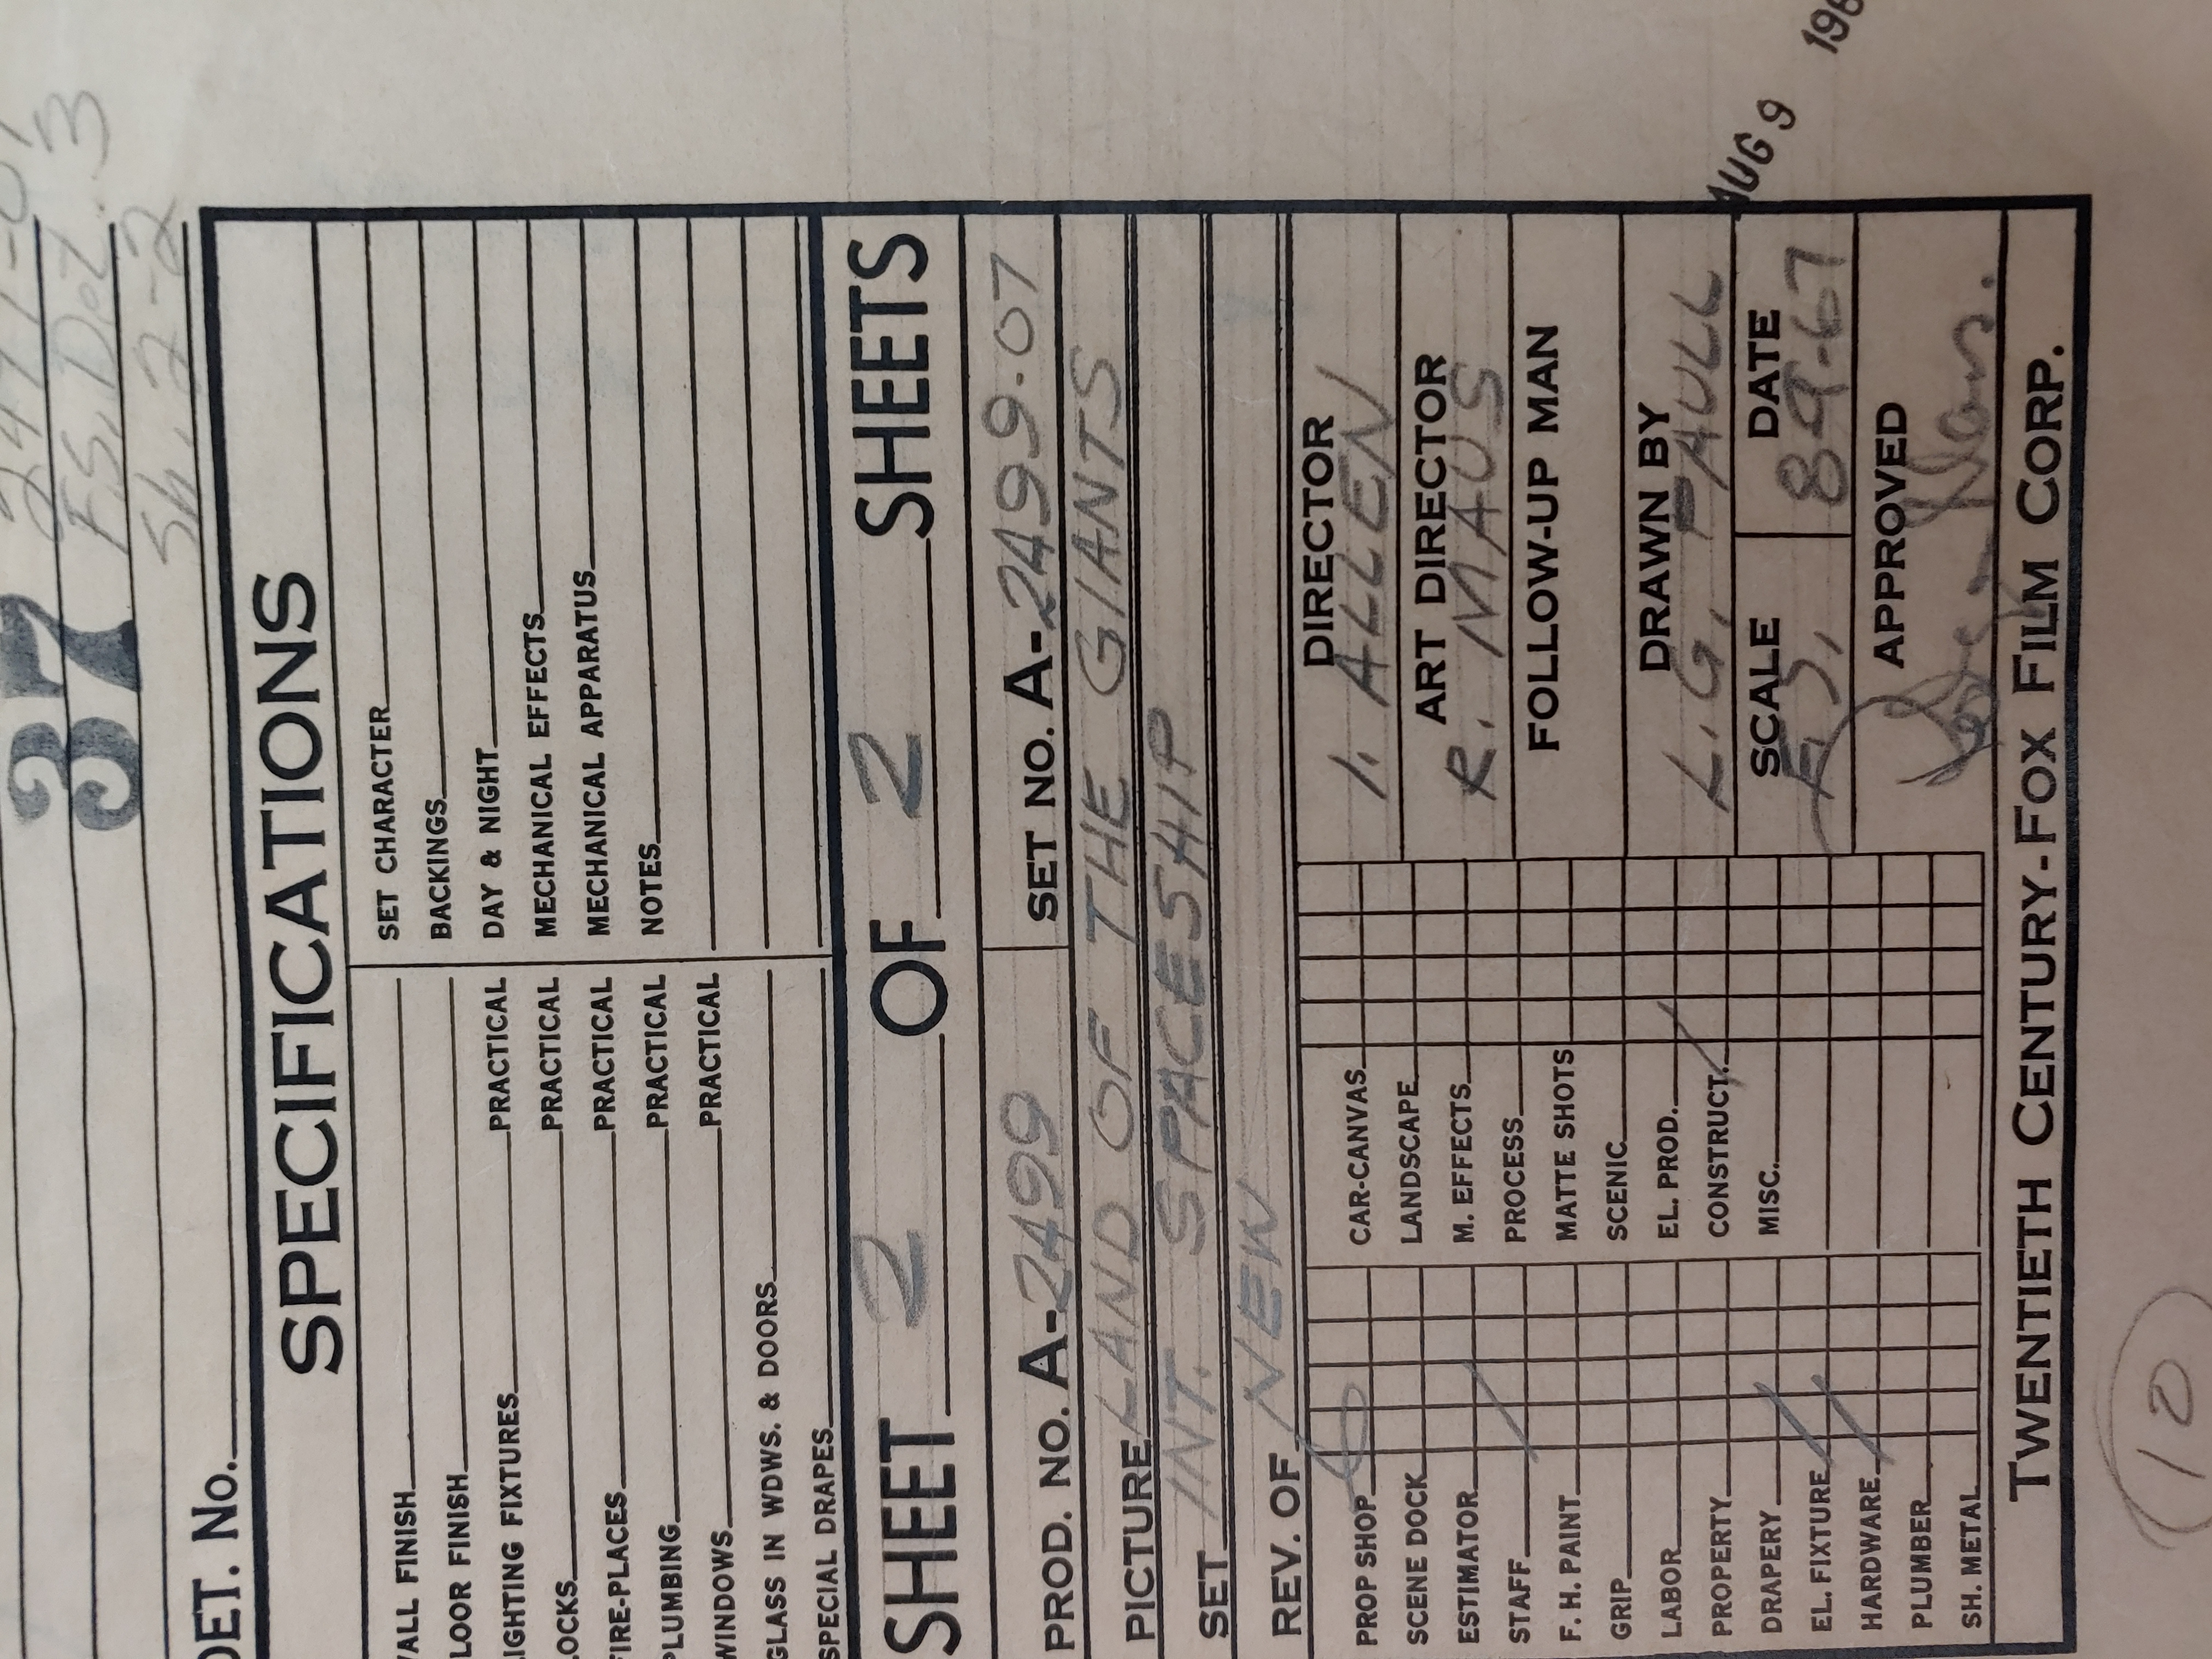 37
F.S. Det. 3
Sh. 2-2
DET. NO.
SPECIFICATIONS
WALL FINISH
FLOOR FINISH
LIGHTING FIXTURES PRACTICAL
LOCKS PRACTICAL
FIRE-PLACES PRACTICAL
PLUMBING PRACTICAL
WINDOWS PRACTICAL
GLASS IN WDWS. & DOORS
SPECIAL DRAPES
SET CHARACTER
BACKINGS
DAY & NIGHT
MECHANICAL EFFECTS
MECHANICAL APPARATUS
NOTES
SHEET 2 OF 2 SHEETS
PROD. NO. A-2499 SET NO. A-2499-07
PICTURE LAND OF THE GIANTS
SET INT. SPACESHIP
REV. OF NEW
PROP SHOP
SCENE DOCK
ESTIMATOR
STAFF
F. H. PAINT
GRIP
LABOR
PROPERTY
DRAPERY
EL. FIXTURE
HARDWARE
PLUMBER
SH. METAL
CAR-CANVAS
LANDSCAPE
M. EFFECTS
PROCESS
MATTE SHOTS
SCENIC
EL. PROD.
CONSTRUCT.
MISC.
DIRECTOR
I. ALLEN
ART DIRECTOR
R. MAUS
FOLLOW-UP MAN
DRAWN BY
L. G. PAULL
SCALE DATE
F.S. 8-9-67
APPROVED
TWENTIETH CENTURY-FOX FILM CORP.
AUG 9 196
10